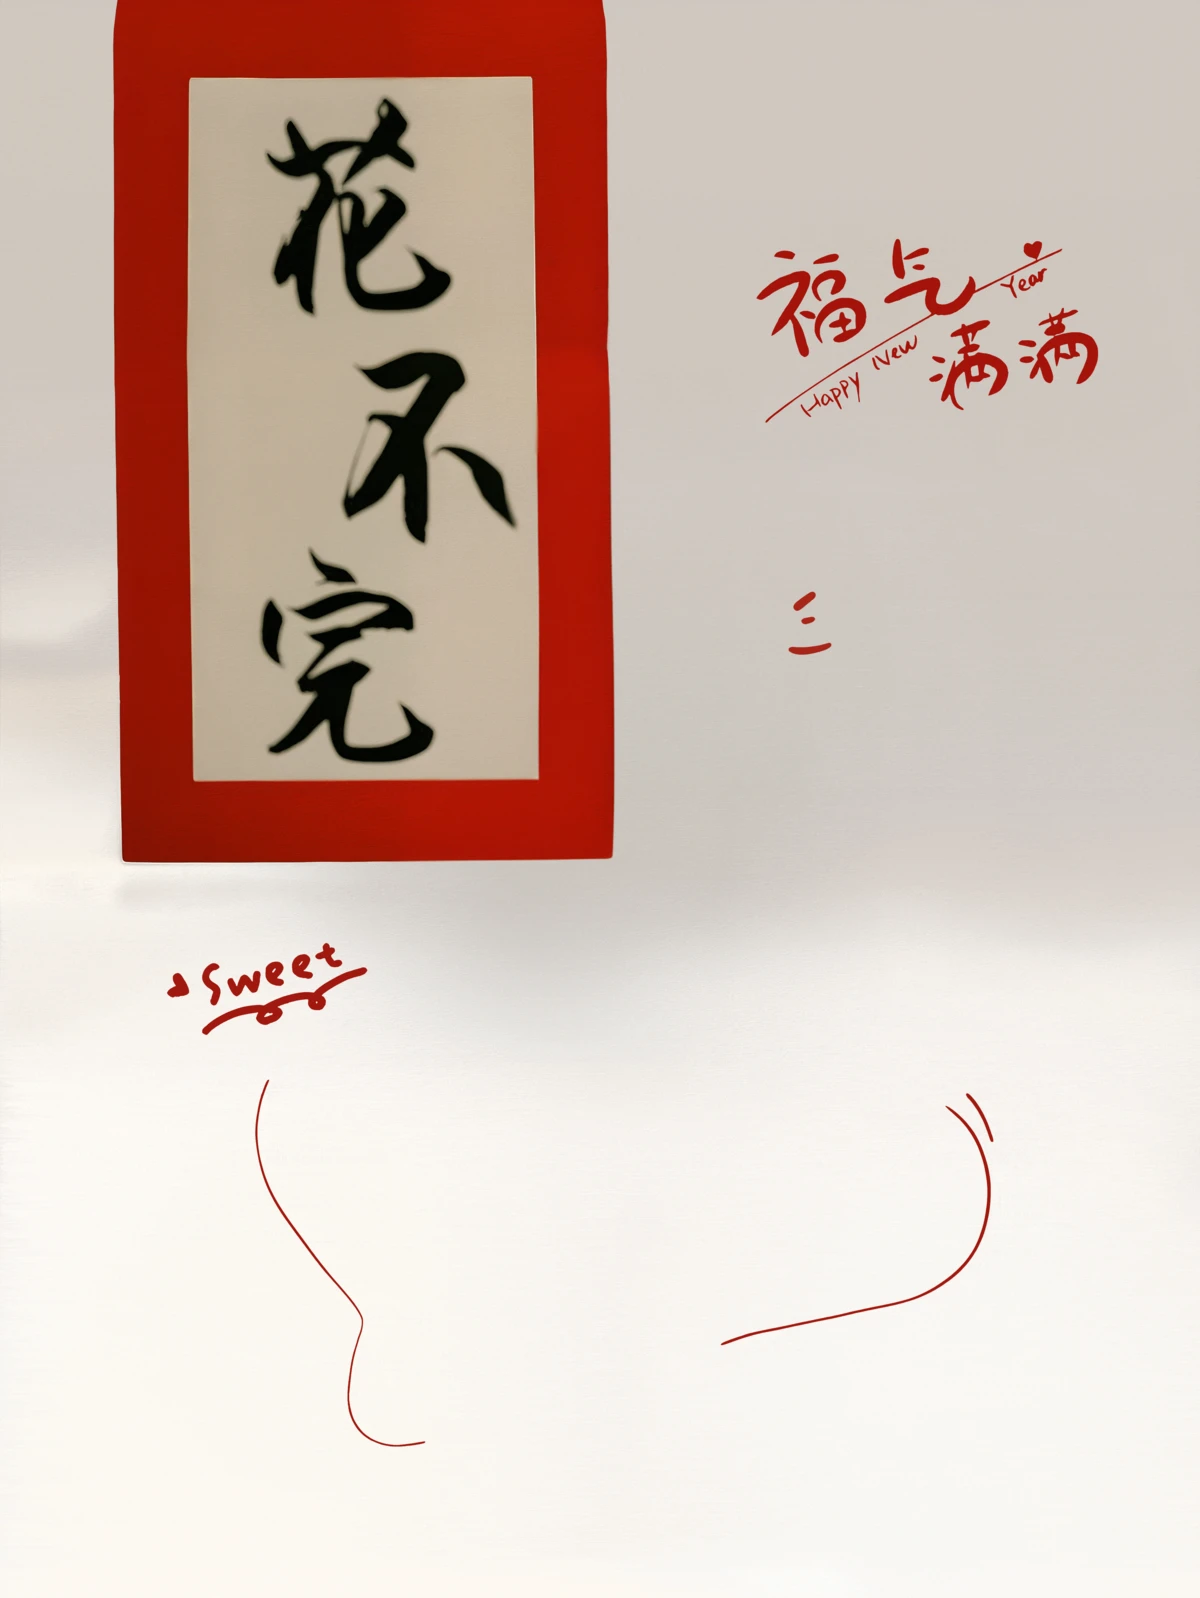 花不完
福气
满满
Happy New Year
Sweet